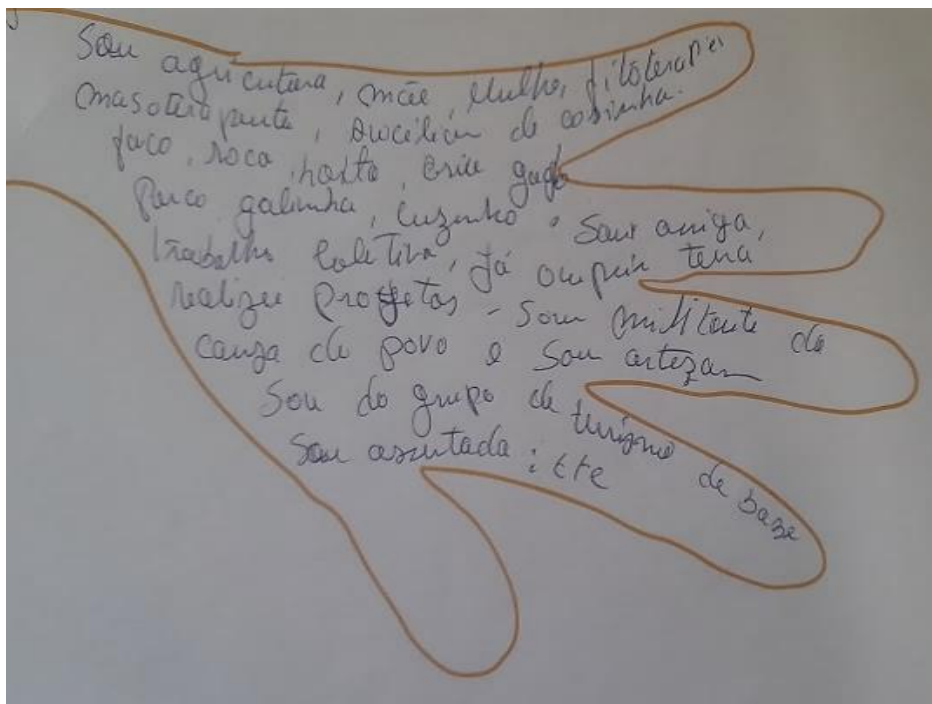 Sou agricutura, mãe, Mulher, fitoterapia
masoterapeuta, Auxiliar de cosinha.
faco, roca, horta, crio gado
Porco galinha, cuzinho, Sou amiga,
Trabalho Coletivo, já ocupei terra
realizei Projetos - Sou militante da
cauza do povo e Sou artezam
Sou do grupo de turismo de base
Sou assentada: etc